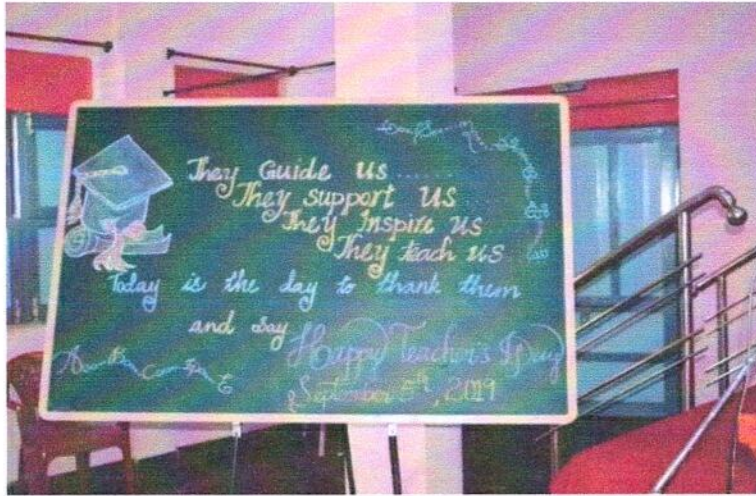 They Guide us ......
They support us
They Inspire us
They teach us
Today is the day to thank them
and say
Happy Teacher's Day
September 5th, 2019
A B C D E